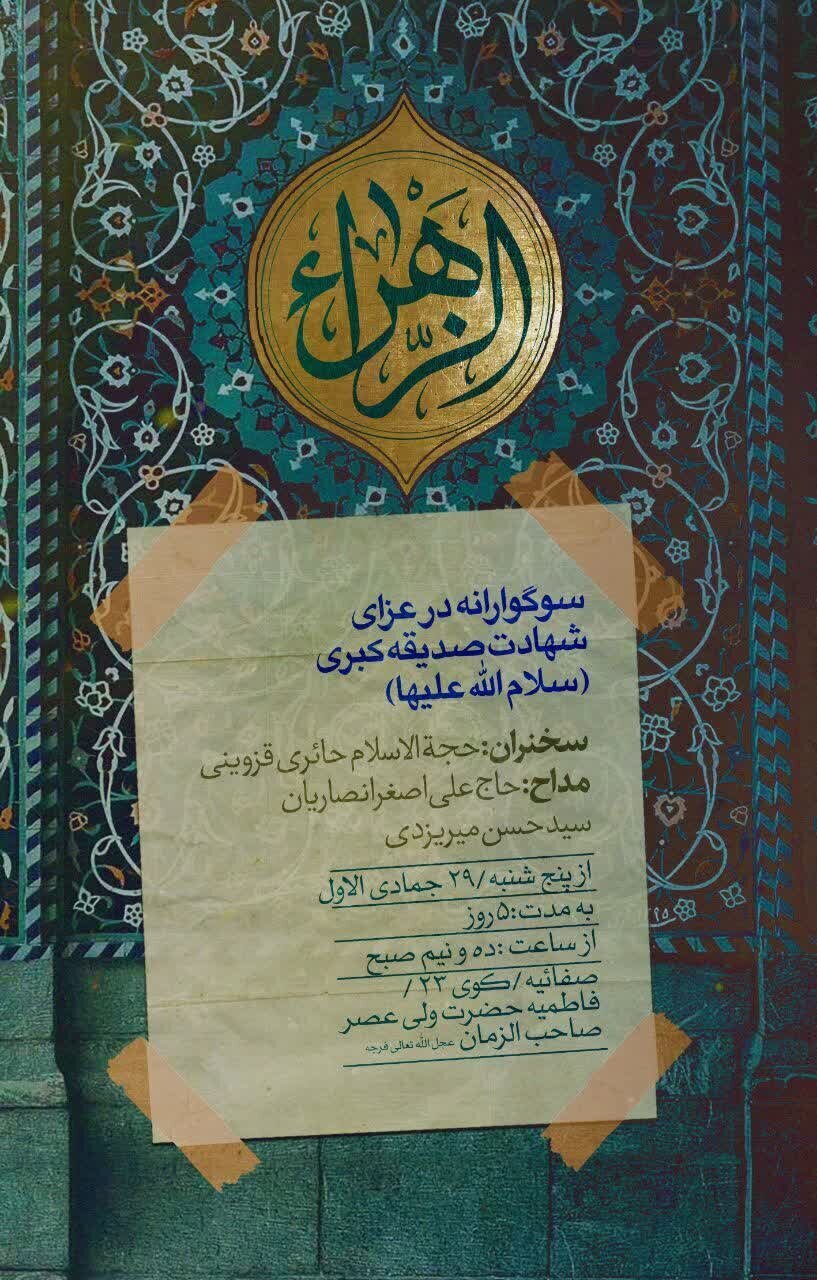 الزّهراء
سوگوارانه در عزای
شهادت صدیقه کبری
(سلام الله علیها)
سخنران: حجة الاسلام حائری قزوینی
مداح: حاج علی اصغر انصاریان
سید حسن میریزدی
از پنج شنبه / ۲۹ جمادی الاول
به مدت: ۵ روز
از ساعت: ده و نیم صبح
صفائیه / کوی ۲۳ /
فاطمیه حضرت ولی عصر
صاحب الزمان عجل الله تعالی فرجه